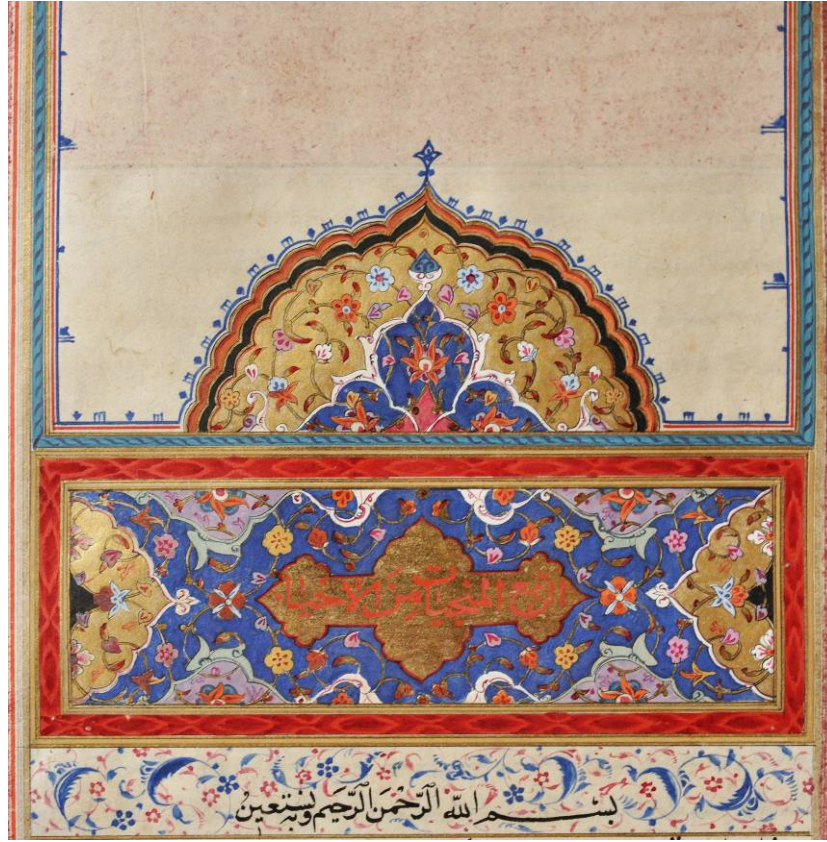 الربع المنجيات من الاحيا
بسم الله الرَّحْمَنِ الرَّحِيمِ وبه نستعينُ